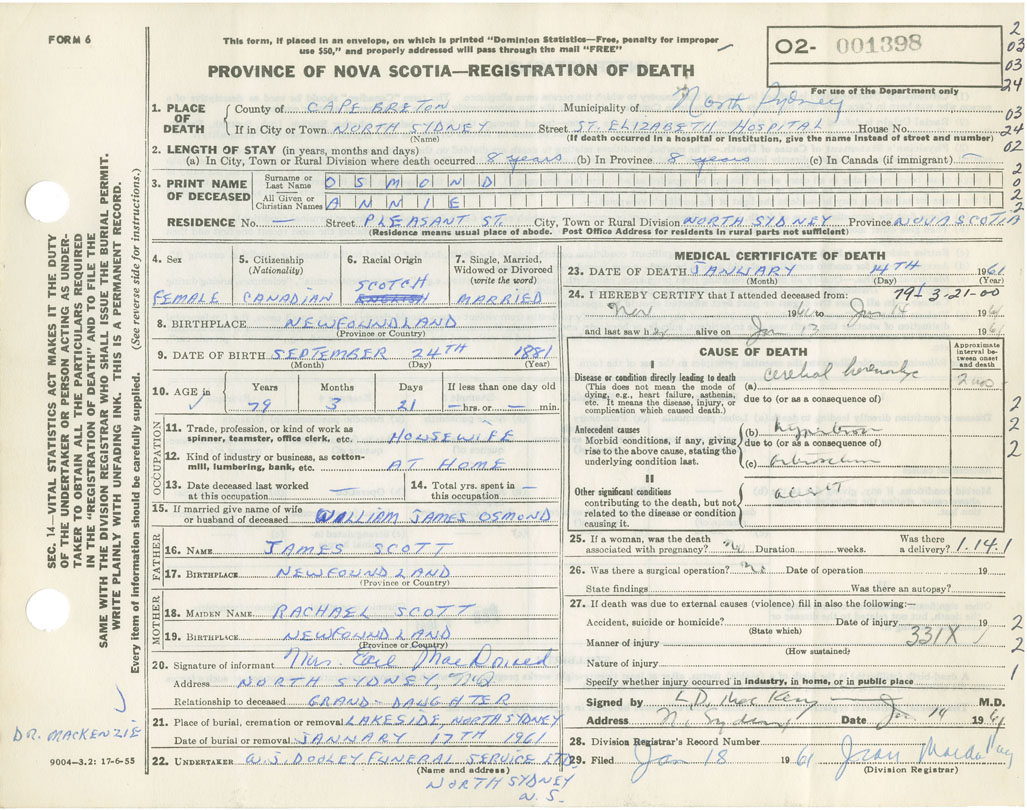 FORM 6
This form, if placed in an envelope, on which is printed "Dominion Statistics—Free, penalty for improper
use $50," and properly addressed will pass through the mail "FREE"
02- 001398
For use of the Department only
PROVINCE OF NOVA SCOTIA—REGISTRATION OF DEATH
2
03
03
24
03
24
02
2
0
2
2
2
2
2
2
2
1
SEC. 14—VITAL STATISTICS ACT MAKES IT THE DUTY
OF THE UNDERTAKER OR PERSON ACTING AS UNDER-
TAKER TO OBTAIN ALL THE PARTICULARS REQUIRED
IN THE "REGISTRATION OF DEATH" AND TO FILE THE
SAME WITH THE DIVISION REGISTRAR WHO SHALL ISSUE THE BURIAL PERMIT.
WRITE PLAINLY WITH UNFADING INK. THIS IS A PERMANENT RECORD.
Every item of information should be carefully supplied. (See reverse side for instructions.)
1. PLACE OF DEATH County of CAPE BRETON Municipality of North Sydney
If in City or Town NORTH SYDNEY Street ST. ELIZABETH HOSPITAL House No.
(Name) (If death occurred in a hospital or institution, give the name instead of street and number)
2. LENGTH OF STAY (in years, months and days)
(a) In City, Town or Rural Division where death occurred 8 years (b) In Province 8 years (c) In Canada (if immigrant) —
3. PRINT NAME OF DECEASED Surname or Last Name OSMOND
All Given or Christian Names ANNIE
RESIDENCE No. — Street PLEASANT ST. City, Town or Rural Division NORTH SYDNEY Province NOVA SCOTIA
(Residence means usual place of abode. Post Office Address for residents in rural parts not sufficient)
4. Sex
FEMALE
5. Citizenship
(Nationality)
CANADIAN
6. Racial Origin
SCOTCH
ENGLISH
7. Single, Married,
Widowed or Divorced
(write the word)
MARRIED
8. BIRTHPLACE NEWFOUNDLAND
(Province or Country)
9. DATE OF BIRTH SEPTEMBER 24TH 1881
(Month) (Day) (Year)
10. AGE in Years Months Days If less than one day old
79 3 21 — hrs. or — min.
OCCUPATION
11. Trade, profession, or kind of work as
spinner, teamster, office clerk, etc. HOUSEWIFE
12. Kind of industry or business, as cotton-
mill, lumbering, bank, etc. AT HOME
13. Date deceased last worked
at this occupation —
14. Total yrs. spent in
this occupation —
15. If married give name of wife
or husband of deceased WILLIAM JAMES OSMOND
FATHER
16. NAME JAMES SCOTT
17. BIRTHPLACE NEWFOUNDLAND
(Province or Country)
MOTHER
18. MAIDEN NAME RACHAEL SCOTT
19. BIRTHPLACE NEWFOUNDLAND
(Province or Country)
20. Signature of informant Mrs. Earl MacDonald
Address NORTH SYDNEY,
Relationship to deceased GRAND-DAUGHTER
21. Place of burial, cremation or removal LAKESIDE, NORTH SYDNEY
Date of burial or removal JANUARY 17TH 1961
22. UNDERTAKER W. J. DOOLEY FUNERAL SERVICE LTD.
(Name and address)
NORTH SYDNEY
N.S.
DR. MACKENZIE
9004—3.2: 17-6-55
MEDICAL CERTIFICATE OF DEATH
23. DATE OF DEATH JANUARY 14TH 1961
(Month) (Day) (Year)
24. I HEREBY CERTIFY that I attended deceased from: 79-3-21-00
Nov 1960 to Jan 14 1961
and last saw her alive on Jan 13 1961
CAUSE OF DEATH
Approximate
interval be-
tween onset
and death
I
Disease or condition directly leading to death
(This does not mean the mode of
dying, e.g., heart failure, asthenia,
etc. It means the disease, injury, or
complication which caused death.)
(a) cerebral hemorrhage
due to (or as a consequence of)
Antecedent causes
Morbid conditions, if any, giving
rise to the above cause, stating the
underlying condition last.
(b)
due to (or as a consequence of)
(c)
II
Other significant conditions
contributing to the death, but not
related to the disease or condition
causing it.
25. If a woman, was the death
associated with pregnancy? No Duration weeks. Was there
a delivery? 1.14.1
26. Was there a surgical operation? No Date of operation 19
State findings Was there an autopsy?
27. If death was due to external causes (violence) fill in also the following:—
Accident, suicide or homicide? Date of injury 19
(State which)
Manner of injury 331X
(How sustained)
Nature of injury
Specify whether injury occurred in industry, in home, or in public place
Signed by M.D.
Address N. Sydney Date Jan 14 1961
28. Division Registrar's Record Number
29. Filed Jan 18 1961 Jean
(Division Registrar)